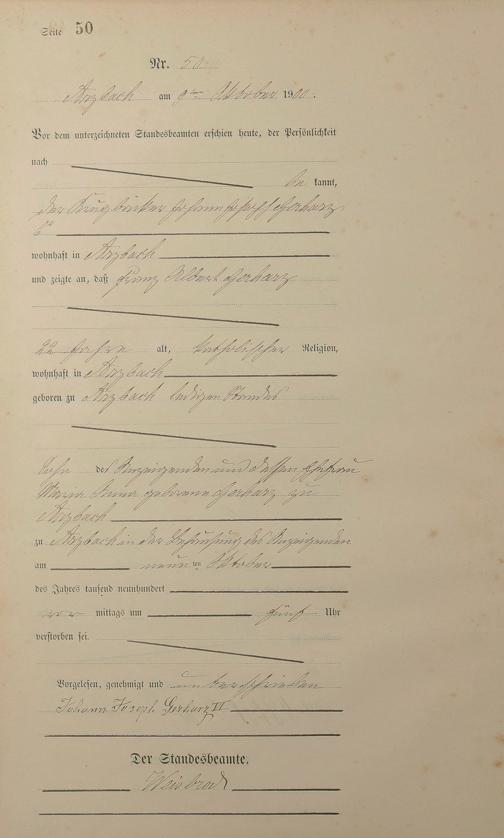 Seite 50
Nr. 50
Arzbach am 9ten Oktober 1900.
Vor dem unterzeichneten Standesbeamten erschien heute, der Persönlichkeit
nach
be kannt,
der Krugbäcker Johann Joseph Gerharz
wohnhaft in Arzbach
und zeigte an, daß Franz Albert Gerharz
22 Jahre alt, katholischer Religion,
wohnhaft in Arzbach
geboren zu Arzbach ledigen Standes
Sohn des Anzeigenden und dessen Ehefrau
Maria Anna geborene Gerharz zu
Arzbach
zu Arzbach in der Behausung des Anzeigenden
am neunten Oktober
des Jahres tausend neunhundert
vor mittags um fünf Uhr
verstorben sei.
Vorgelesen, genehmigt und unterschrieben
Johann Joseph Gerharz II
Der Standesbeamte.
Weisbrod